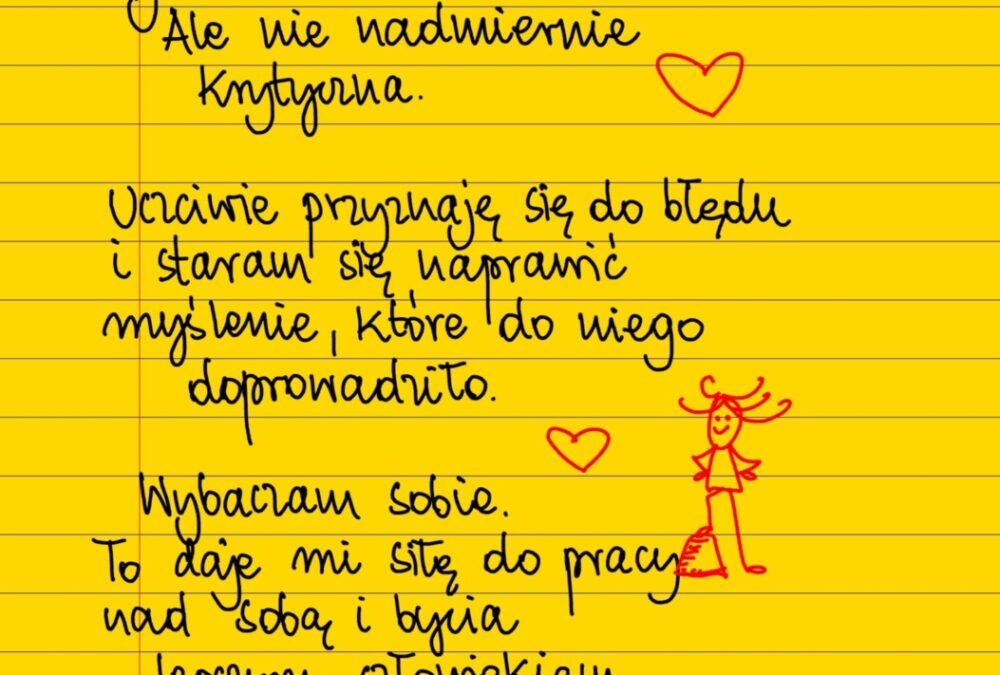 Ale nie nadmiernie
krytyczna.
Uczciwie przyznaję się do błędu
i staram się naprawić
myślenie, które do niego
doprowadziło.
Wybaczam sobie.
To daje mi siłę do pracy
nad sobą i bycia
lepszym człowiekiem